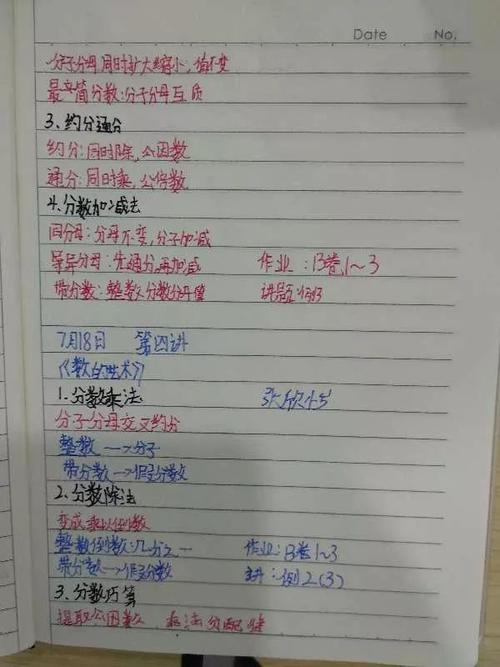 Date No.
分子分母同时扩大缩小,值不变
最简分数:分子分母互质
3、约分通分
约分:同时除,公因数
通分:同时乘,公倍数
4、分数加减法
同分母:分母不变,分子加减
异分母:先通分,再加减 作业:B卷1~3
带分数:整数、分数分开算 讲题:例3
7月18日 第四讲
《数的艺术》
1、分数乘法
分子分母交叉约分
整数→分子
带分数→假分数
2、分数除法
变成乘以倒数
整数倒数:几分之一 作业:B卷1~3
带分数→假分数 主讲:例2(3)
3、分数巧算
提取公因数 乘法分配律